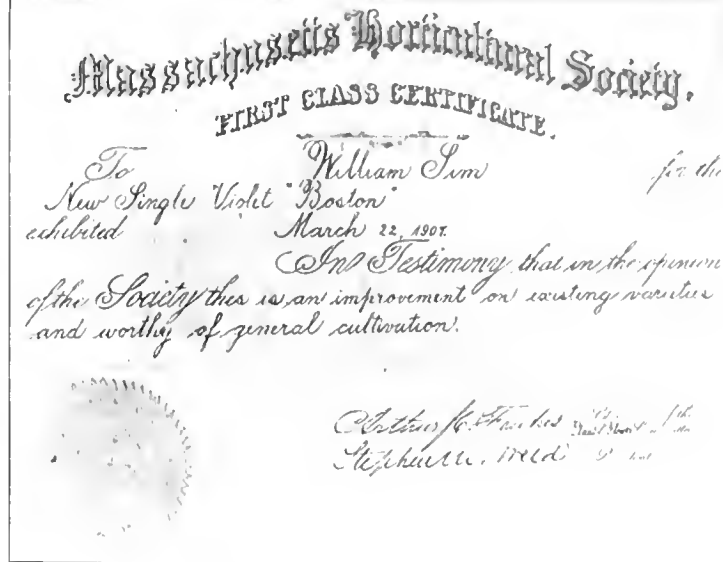 Massachusetts Horticultural Society.
FIRST CLASS CERTIFICATE.
To William Sim for the
New Single Violet "Boston"
exhibited March 22, 1907.
In Testimony that in the opinion
of the Society this is an improvement on existing varieties
and worthy of general cultivation.
Arthur
Stephen M. Weld